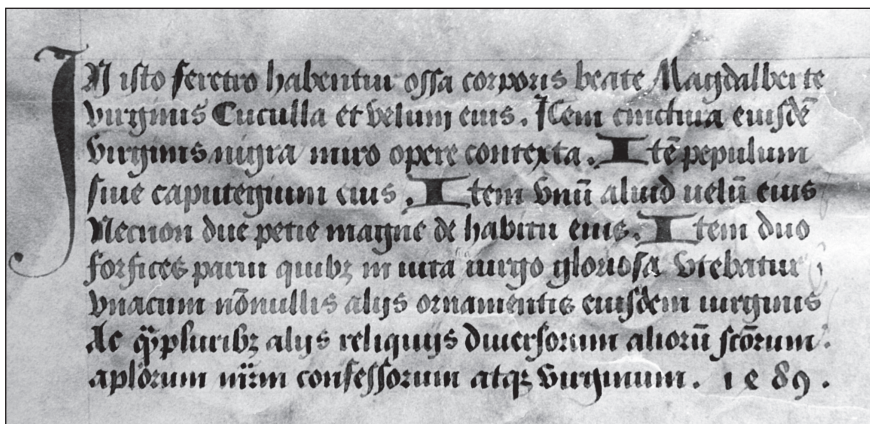 IN isto feretro habentur ossa corporis beate Magdalberte
virginis Cuculla et velum eius. Item cinctura eiusdē
virginis nigra miro opere contexta. Itē pepulum
siue caputegium eius. Item vnū aliud uelū eius
Necnon due petie magne de habitu eius. Item duo
forfices parui quibꝫ in uita uirgo gloriosa vtebatur
vnacum nōnullis alijs ornamentis eiusdem uirginis
Ac qͣ̄pluribꝫ alijs reliquijs diuersorum aliorū scōrum
aplōrum mr̄m confessorum atqꝫ virginum. 1 8 9.